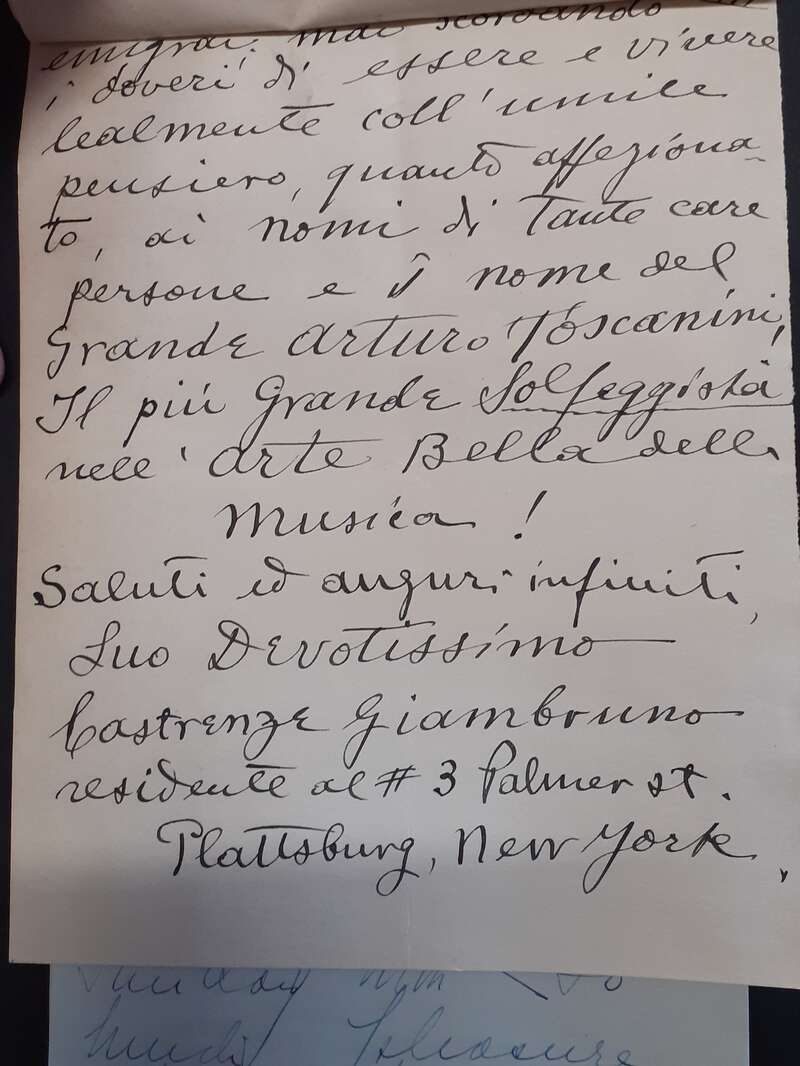 emigrai; mai scordando
i doveri di essere e vivere
lealmente coll'umile
pensiero, quanto affeziona-
to, ai nomi di tante care
persone e il nome del
Grande Arturo Toscanini,
Il più Grande Solfeggista
nell'Arte Bella della
Musica!
Saluti ed auguri infiniti,
Suo Devotissimo
Castrenze Giambruno
residente al # 3 Palmer st.
Plattsburg, New York,
Sunday
Much Pleasure